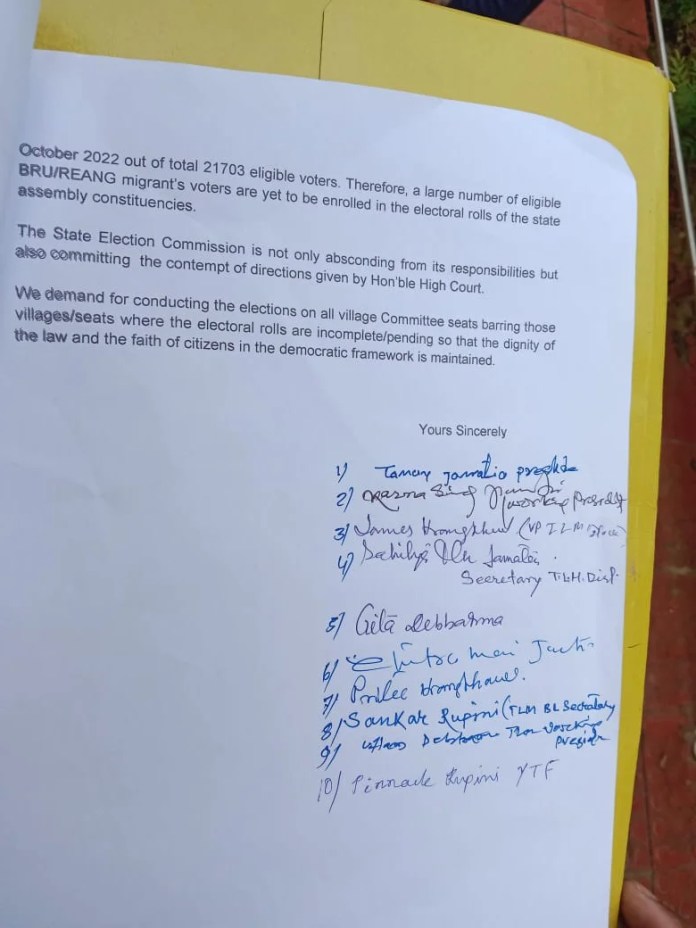 October 2022 out of total 21703 eligible voters. Therefore, a large number of eligible
BRU/REANG migrant's voters are yet to be enrolled in the electoral rolls of the state
assembly constituencies.
The State Election Commission is not only absconding from its responsibilities but
also committing the contempt of directions given by Hon'ble High Court.
We demand for conducting the elections on all village Committee seats barring those
villages/seats where the electoral rolls are incomplete/pending so that the dignity of
the law and the faith of citizens in the democratic framework is maintained.
Yours Sincerely
1)
2) Karma Sing
3) James (VP
4)
Secretary T.L.M. Dist.
5) Gita Debbarma
6)
7)
8) Sankar Rupini (TLM BL Secretary
9)
10) Pinnack Rupini YTF